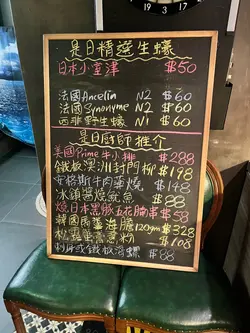 12
3
是日精選生蠔
日本小室津 $50
法國Ancelin N2 $60
法國Synonyme N2 $60
西非野生蠔 N1 $60
是日廚師推介
美國Prime牛小排 $288
鐵板澳洲封門柳 $198
安格斯牛肉 燒 $148
冰鎮醬燒鮑魚 $88
燒日本黑豚五花腩串 $58
韓國 海膽 120gm $328
松露 粉 $108
或鐵板清蠔 $88